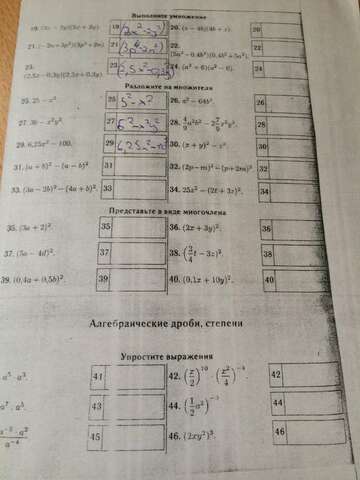 Выполните умножение
19. 19 20. (x − 4b)(4b + x). 20
21. (−2n + 3p²)(3p² + 2n). 21 22. (5a² − 0,4b³)(0,4b³ + 5a²). 22
23. (2,5x − 0,3y)(2,5x + 0,3y). 23 24. (a³ + 6)(a³ − 6). 24
Разложите на множители
25. 25 − x². 25 5² − x² 26. a² − 64b². 26
27. 36 − x²y². 27 6² − x²y² 28. 4/9 a²b² − 2 7/9 p²y². 28
29. 6,25x² − 100. 29 30. (x + y)² − x². 30
31. (a + b)² − (a − b)². 31 32. (2p − m)² − (p + 2m)². 32
33. (3a − 2b)² − (4a + b)². 33 34. 25z² − (2t + 3z)². 34
Представьте в виде многочлена
35. (3a + 2)². 35 36. (2x + 3y)². 36
37. (5a − 4d)². 37 38. (2/3 t − 3z)². 38
39. (0,4a + 0,5b)². 39 40. (0,1x + 10y)². 40
Алгебраические дроби, степени
Упростите выражения
a⁵ · a³ 41 42. (z/2)¹⁰ · (z²/4)⁻⁴. 42
a⁷ · a⁵. 43 44. (1/2 a²)⁻³ 44
a⁻⁴ 45 46. (2xy²)³. 46